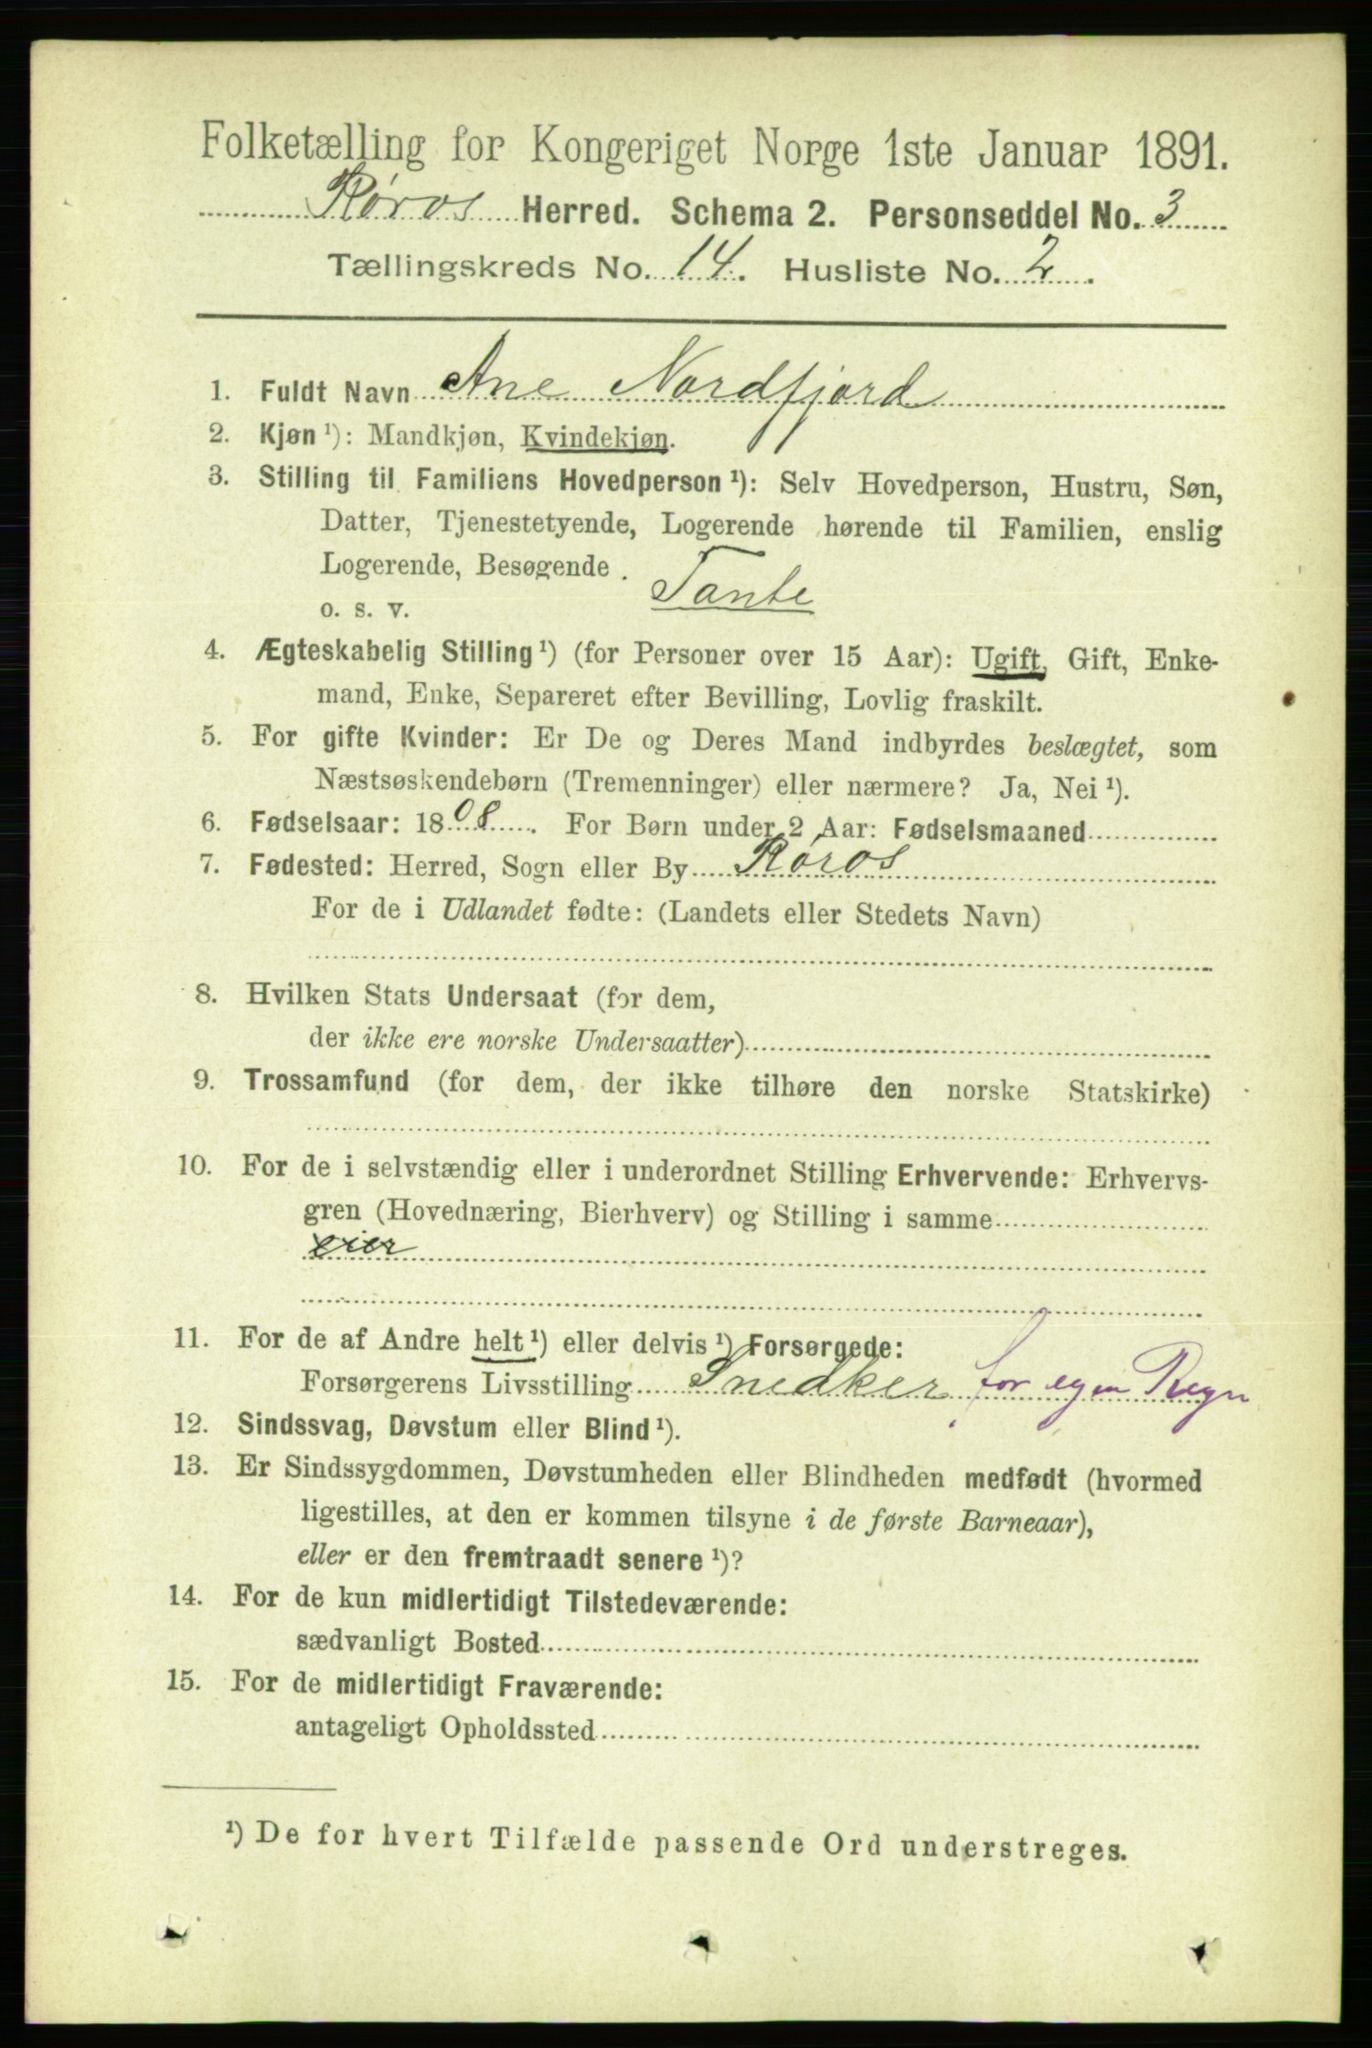 Folketælling for Kongeriget Norge 1ste Januar 1891.
Røros Herred. Schema 2. Personseddel No. 3
Tællingskreds No. 14. Husliste No. 2.
1. Fuldt Navn Ane Nordfjord
2. Kjøn ¹): Mandkjøn, Kvindekjøn.
3. Stilling til Familiens Hovedperson ¹): Selv Hovedperson, Hustru, Søn,
Datter, Tjenestetyende, Logerende hørende til Familien, enslig
Logerende, Besøgende.
o. s. v. Tante
4. Ægteskabelig Stilling ¹) (for Personer over 15 Aar): Ugift, Gift, Enke-
mand, Enke, Separeret efter Bevilling, Lovlig fraskilt.
5. For gifte Kvinder: Er De og Deres Mand indbyrdes beslægtet, som
Næstsøskendebørn (Tremenninger) eller nærmere? Ja, Nei ¹).
6. Fødselsaar: 1808. For Børn under 2 Aar: Fødselsmaaned
7. Fødested: Herred, Sogn eller By Røros
For de i Udlandet fødte: (Landets eller Stedets Navn)
8. Hvilken Stats Undersaat (for dem,
der ikke ere norske Undersaatter)
9. Trossamfund (for dem, der ikke tilhøre den norske Statskirke)
10. For de i selvstændig eller i underordnet Stilling Erhvervende: Erhvervs-
gren (Hovednæring, Bierhverv) og Stilling i samme
eier
11. For de af Andre helt ¹) eller delvis ¹) Forsørgede:
Forsørgerens Livsstilling Snedker for egen Regn
12. Sindssvag, Døvstum eller Blind ¹).
13. Er Sindssygdommen, Døvstumheden eller Blindheden medfødt (hvormed
ligestilles, at den er kommen tilsyne i de første Barneaar),
eller er den fremtraadt senere ¹)?
14. For de kun midlertidigt Tilstedeværende:
sædvanligt Bosted
15. For de midlertidigt Fraværende:
antageligt Opholdssted
¹) De for hvert Tilfælde passende Ord understreges.